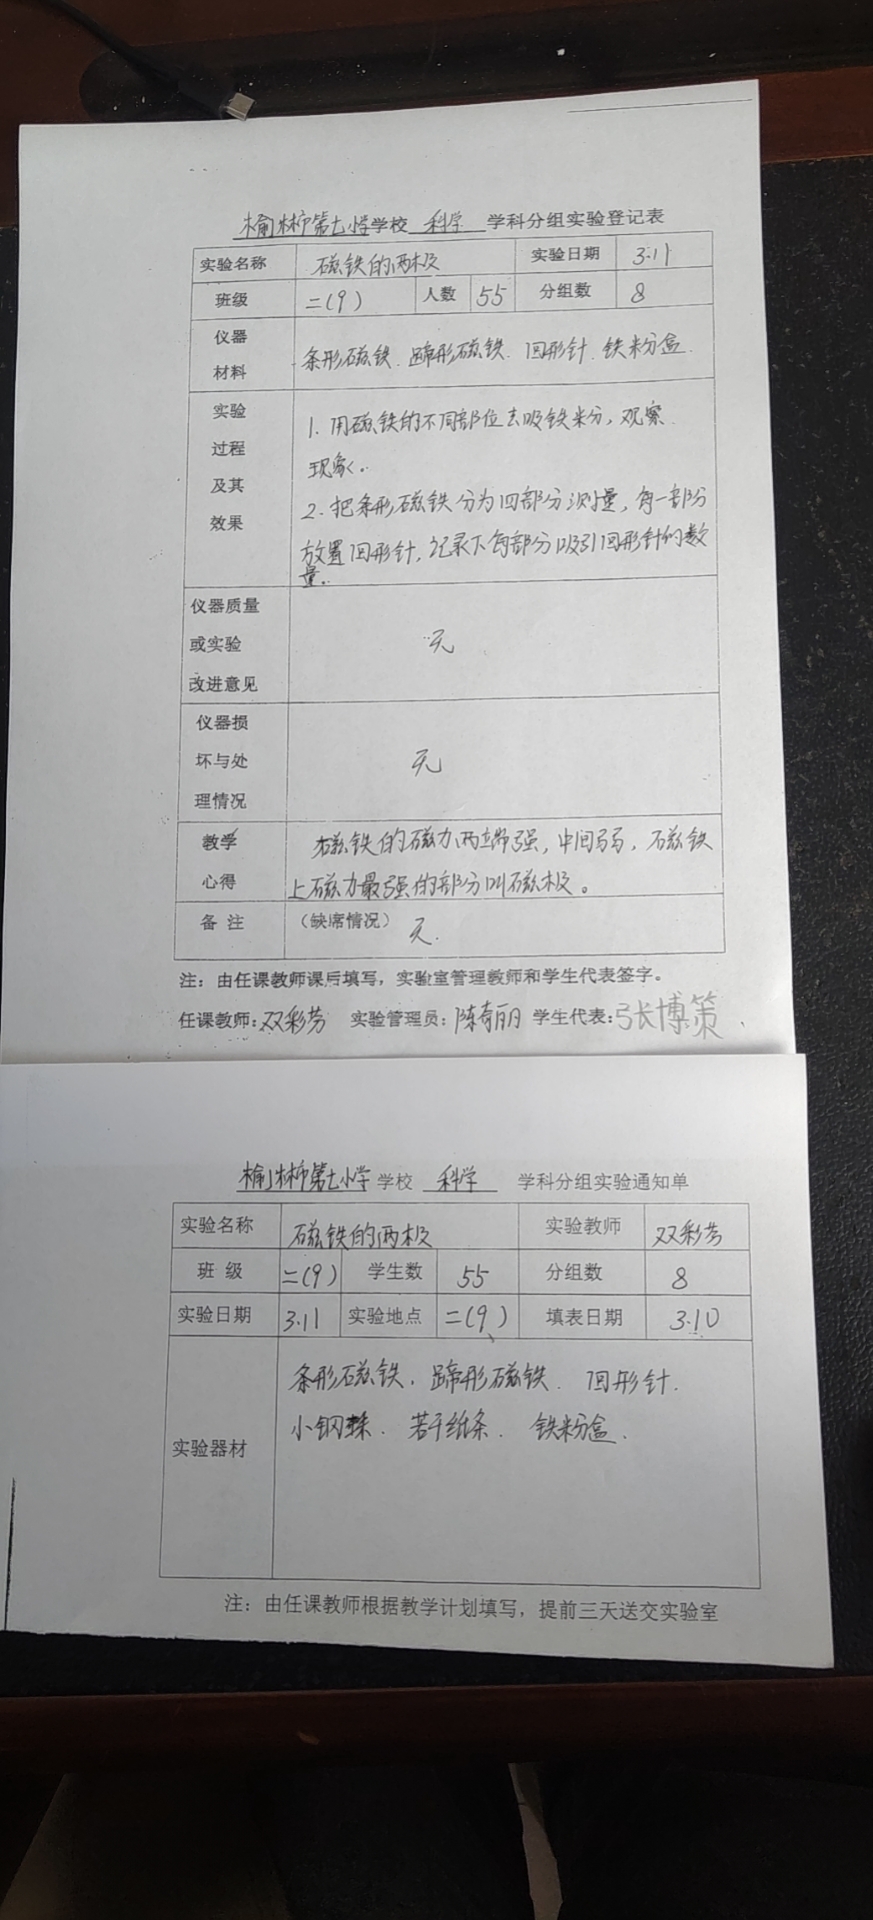 榆林市第七小学学校 科学 学科分组实验登记表
实验名称 磁铁的两极 实验日期 3.11
班级 二(9) 人数 55 分组数 8
仪器
材料
条形磁铁、蹄形磁铁、回形针、铁粉盒
实验
过程
及其
效果
1.用磁铁的不同部位去吸铁米分,观察
现象。
2.把条形磁铁分为四部分测量,每一部分
放置回形针,记录下每部分吸引回形针的数
量。
仪器质量
或实验
改进意见
无
仪器损
坏与处
理情况
无
教学
心得
磁铁的磁力两端强,中间弱,磁铁
上磁力最强的部分叫磁极。
备 注 (缺席情况) 无.
注:由任课教师课后填写,实验室管理教师和学生代表签字。
任课教师:双彩芳 实验管理员:陈奇丽 学生代表:张博策
榆林市第七小学 学校 科学 学科分组实验通知单
实验名称 磁铁的两极 实验教师 双彩芳
班 级 二(9) 学生数 55 分组数 8
实验日期 3.11 实验地点 二(9) 填表日期 3.10
实验器材
条形磁铁、蹄形磁铁、回形针、
小钢珠、若干纸条、铁粉盒、
注:由任课教师根据教学计划填写,提前三天送交实验室